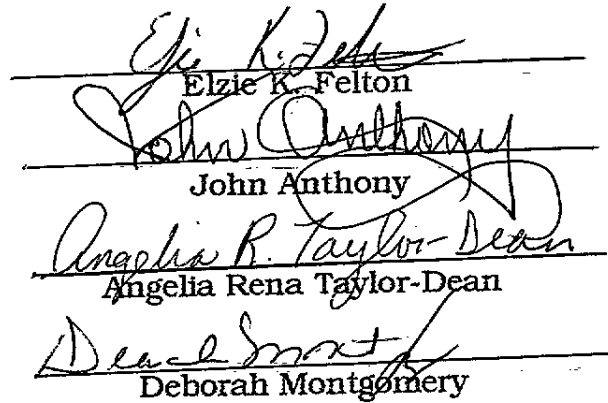 Elzie K. Felton
Elzie K. Felton
John Anthony
John Anthony
Angelia R. Taylor-Dean
Angelia Rena Taylor-Dean
Deborah Montgomery